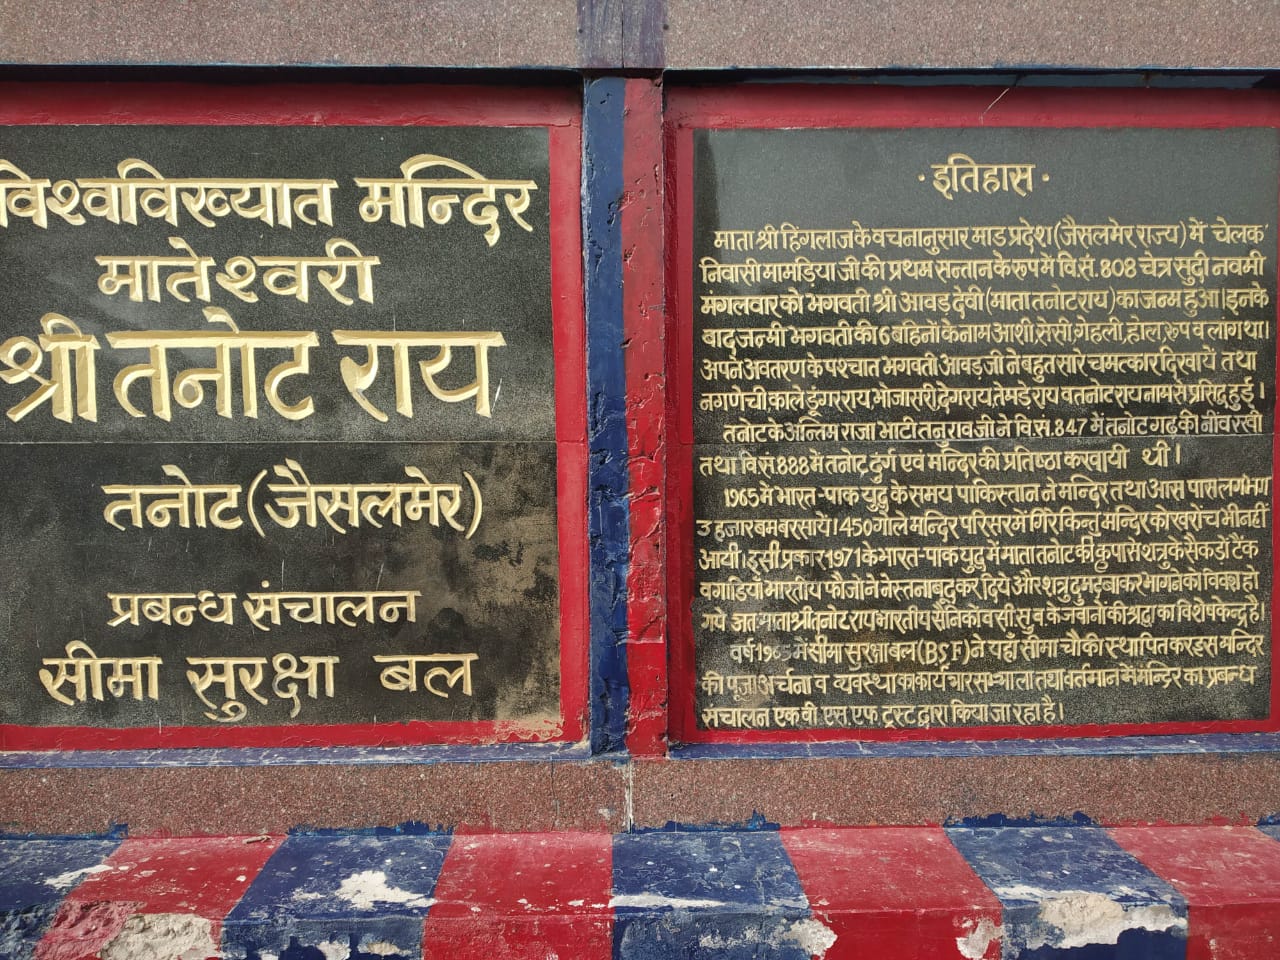 विश्वविख्यात मन्दिर
मातेश्वरी
श्री तनोट राय
तनोट (जैसलमेर)
प्रबन्ध संचालन
सीमा सुरक्षा बल
• इतिहास •
माता श्री हिंगलाज के वचनानुसार माड प्रदेश (जैसलमेर राज्य) में चेलक
निवासी मामड़िया जी की प्रथम सन्तान के रूप में वि.सं. 808 चेत्र सुदी नवमी
मंगलवार को भगवती श्री आवड़ देवी (माता तनोट राय) का जन्म हुआ। इनके
बाद जन्मी भगवती की 6 बहिनों के नाम आशी, सेसी, गेहली, होल, रूप व लांग था।
अपने अवतरण के पश्चात भगवती आवड़ जी ने बहुत सारे चमत्कार दिखाये तथा
नगणेची, काले डूंगरराय, भोजासरी, देगराय, तेमड़ेराय व तनोट राय नाम से प्रसिद्ध हुई।
तनोट के अन्तिम राजा भाटी तनुरावजी ने वि.सं. 847 में तनोट गढ़ की नींव रखी
तथा वि.सं. 888 में तनोट दुर्ग एवं मन्दिर की प्रतिष्ठा करवायी थी।
1965 में भारत-पाक युद्ध के समय पाकिस्तान ने मन्दिर तथा आस पास लगभग
3 हजार बम बरसाये। 450 गोले मन्दिर परिसर में गिरे किन्तु मन्दिर को खरोंच भी नहीं
आयी। इसी प्रकार 1971 के भारत-पाक युद्ध में माता तनोट की कृपा से शत्रु के सैकड़ों टैंक
व गाड़ियाँ भारतीय फौजों ने नेस्तनाबूद कर दिये और शत्रु दुम दबाकर भागने को विवश हो
गये अतः माता श्री तनोट राय भारतीय सैनिकों व सी.सु.ब के जवानों की श्रद्धा का विशेष केन्द्र है।
वर्ष 1965 में सीमा सुरक्षा बल (BSF) ने यहाँ सीमा चौकी स्थापित कर इस मन्दिर
की पूजा अर्चना व व्यवस्था का कार्यभार सम्भाला तथा वर्तमान में मन्दिर का प्रबन्ध
संचालन एक बी.एस.एफ. ट्रस्ट द्वारा किया जा रहा है।